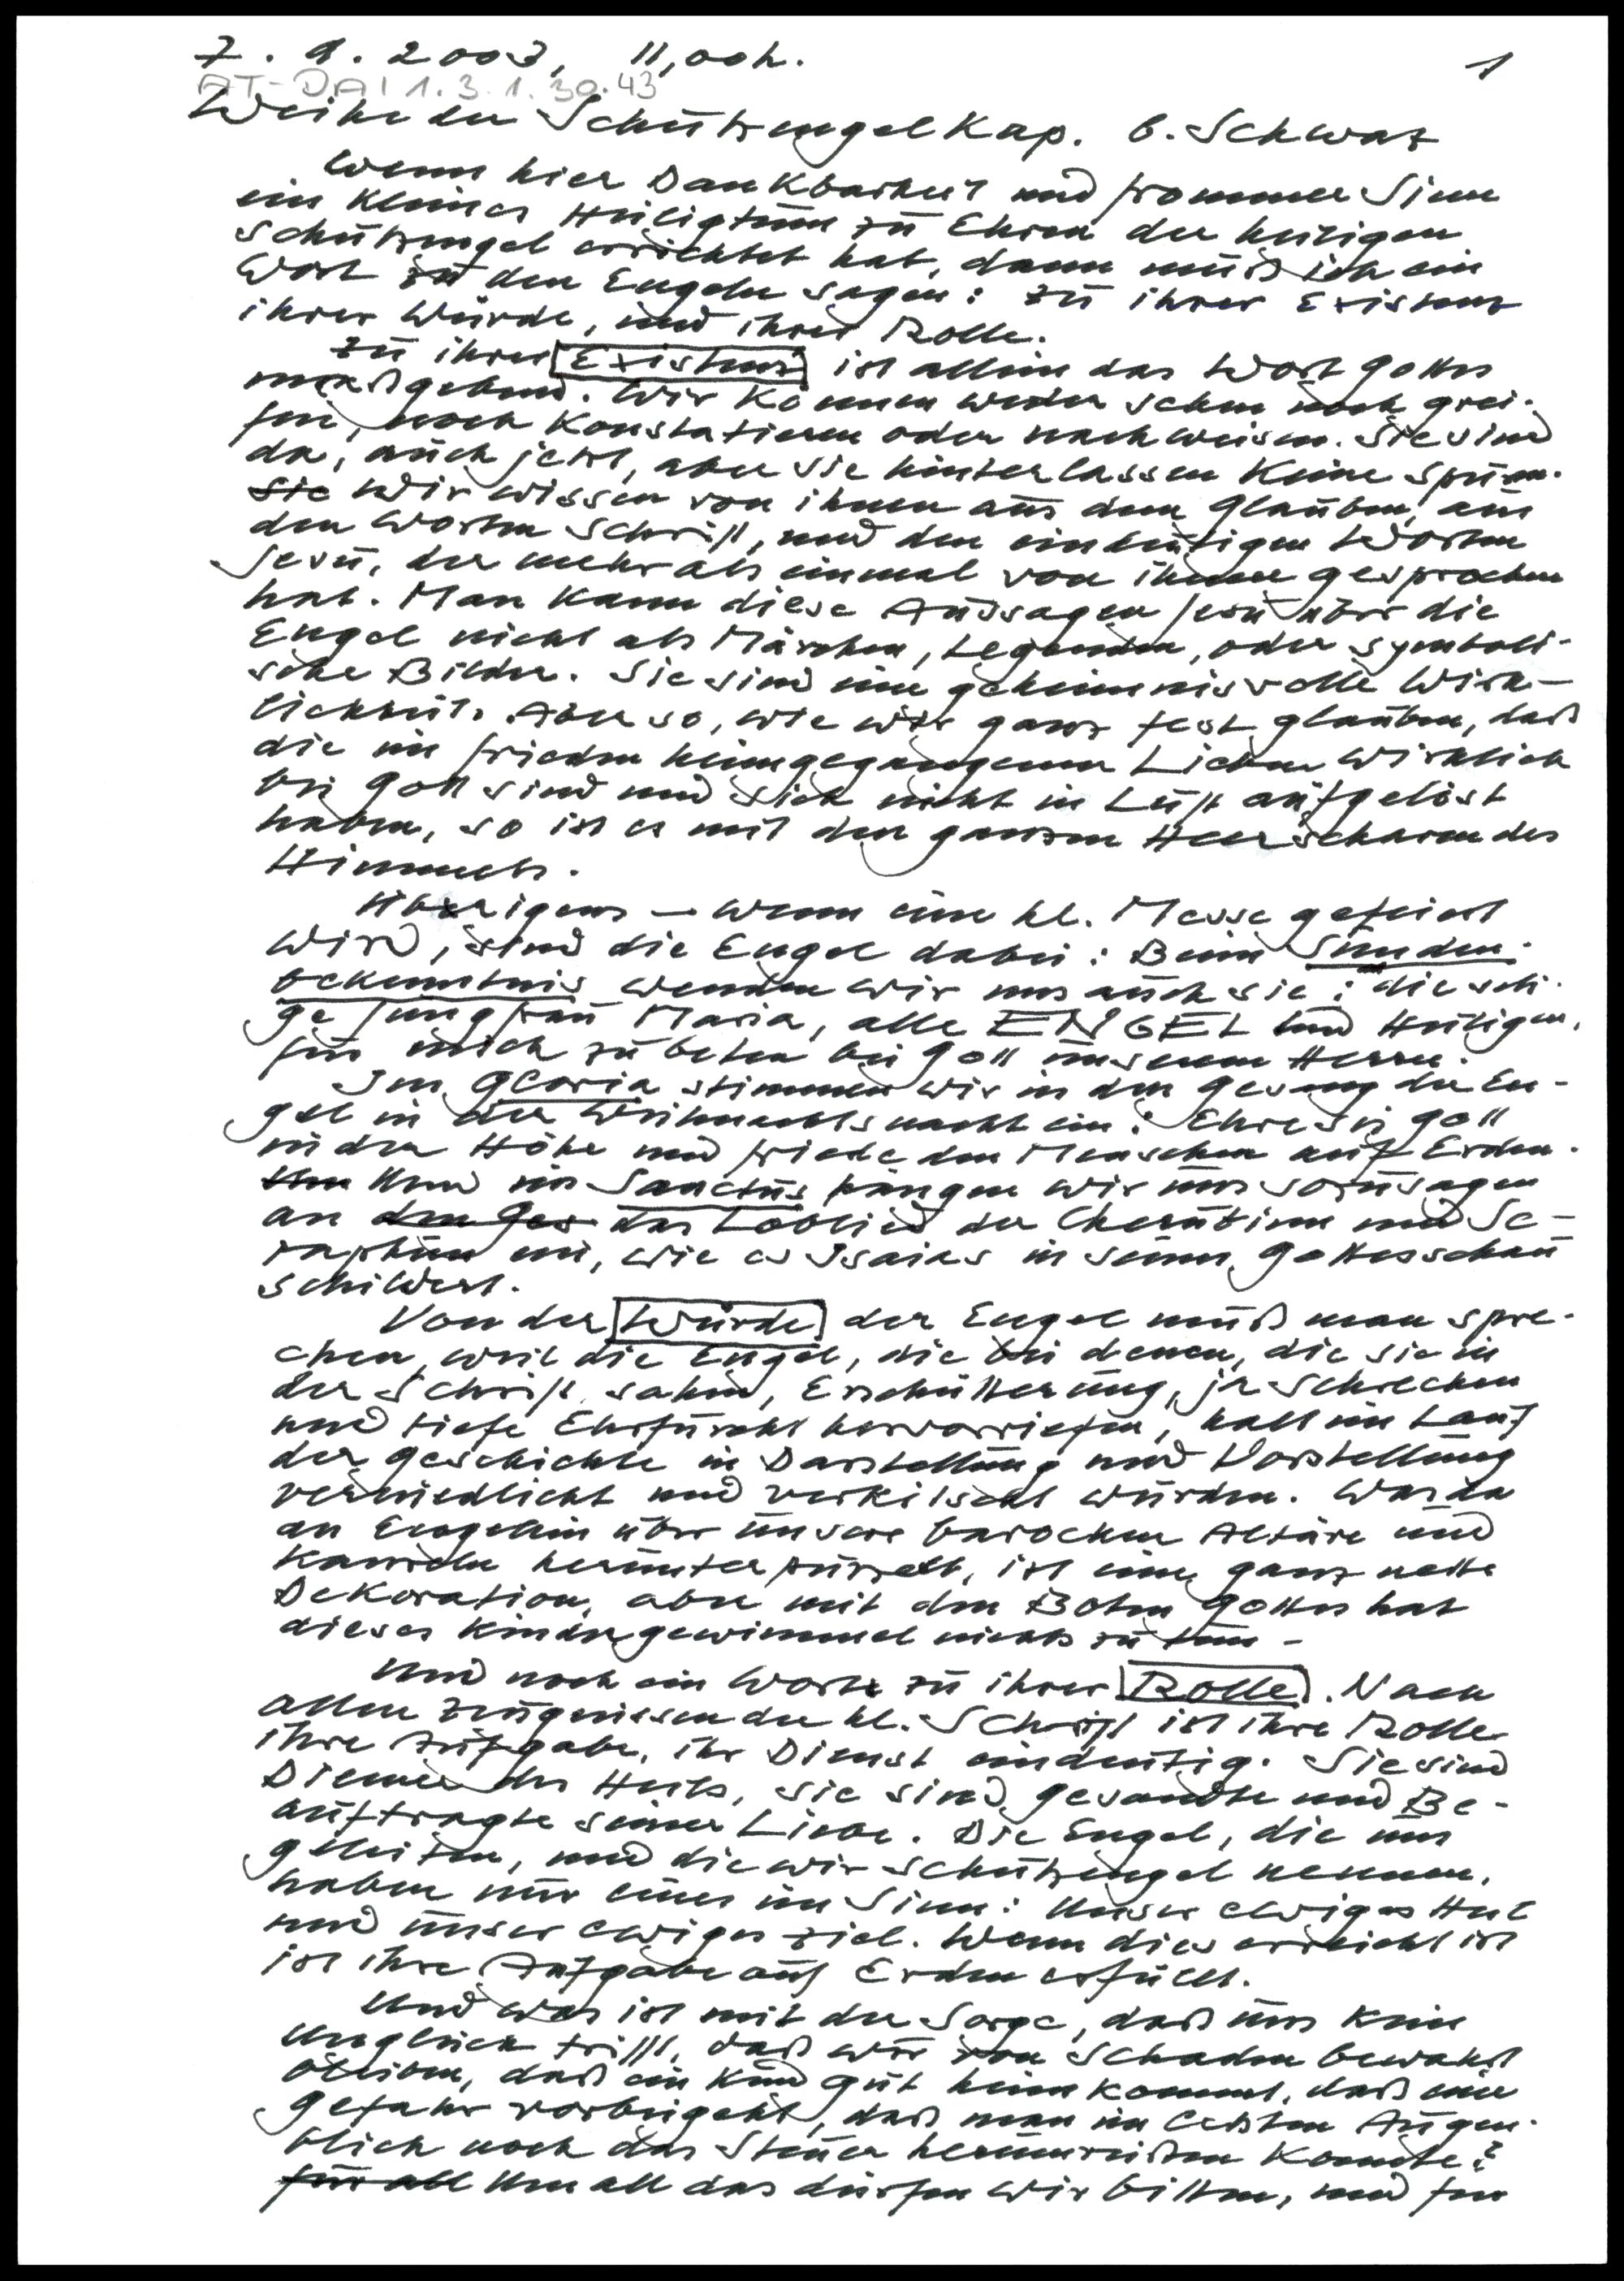 7. 9. 2003, 11,00h. 1
AT-DAI 1.3.1.30.43
Weihe der Schutzengelkap. b. Schwaz
Wenn hier Dankbarkeit und frommer Sinn
ein kleines Heiligtum zu Ehren der heiligen
Schutzengel errichtet hat, dann muß ich ein
Wort zu den Engeln sagen: zu ihrer Existenz
ihrer Würde, und ihrer Rolle.
Zu ihrer Existenz ist allein das Wort Gottes
maßgebend. Wir können weder sehen noch grei-
fen, noch konstatieren oder nachweisen. Sie sind
da, auch jetzt, aber sie hinterlassen keine Spuren.
Sie Wir wissen von ihnen aus dem Glauben, aus
den Worten Schrift, und den eindeutigen Worten
Jesu, der mehr als einmal von ihnen gesprochen
hat. Man kann diese Aussagen Jesu über die
Engel nicht als Märchen, Legenden, oder symboli-
sche Bilder. Sie sind eine geheimnisvolle Wirk-
lichkeit. Aber so, wie wir ganz fest glauben, daß
die im Frieden heimgegangenen Lieben wirklich
bei Gott sind und sich nicht in Luft aufgelöst
haben, so ist es mit den ganzen Heerscharen des
Himmels.
Übrigens – wenn eine hl. Messe gefeiert
wird, sind die Engel dabei: Beim Sünden-
bekenntnis wenden wir uns auch sie: die seli-
ge Jungfrau Maria, alle ENGEL und Heiligen,
für mich zu beten bei Gott unserem Herrn.
Im Gloria stimmen wir in den Gesang der En-
gel in der Weihnachtsnacht ein: Ehre sei Gott
in der Höhe und Friede den Menschen auf Erden.
Und im Sanctus hängen wir uns sozusagen
an den Ges das Loblied der Cherubinen und Se-
raphinen an, wie es Isaias in seiner Gottesschau
schildert.
Von der Würde der Engel muß man spre-
chen, weil die Engel, die bei denen, die sie in
der Schrift sahen, Erschütterung, ja Schrecken
und tiefe Ehrfurcht hervorriefen, halt im Lauf
der Geschichte in Darstellung und Vorstellung
verniedlicht und verkitscht wurden. Was da
an Engelein über unsere barocken Altäre und
Kanzeln herunterpurzelt, ist eine ganz nette
Dekoration, aber mit den Boten Gottes hat
dieses Kindergewimmel nichts zu tun –
Und noch ein Wort zu ihrer Rolle. Nach
allen Zeugnissen der hl. Schrift ist ihre Rolle
ihre Aufgabe, ihr Dienst eindeutig. Sie sind
Diener des Heils, sie sind Gesandte und Be-
auftragte seiner Liebe. Die Engel, die uns
geleiten, und die wir Schutzengel nennen,
haben nur eines im Sinn: Unser ewiges Heil
und unser ewiges Ziel. Wenn dies erreicht ist
ist ihre Aufgabe auf Erden erfüllt.
Und was ist mit der Sorge, daß uns kein
Unglück trifft, daß wir von Schaden bewahrt
bleiben, daß ein Kind gut heimkommt, daß eine
Gefahr vorbeigeht, daß man im letzten Augen-
blick noch das Steuer herumreißen konnte?
für all Um all das dürfen wir bitten, und für